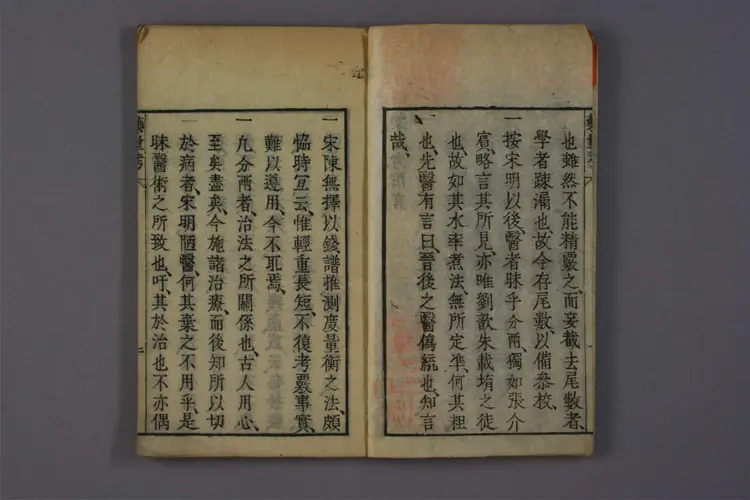 也、雖然不能精覈之、而妄截去尾數者、
學者疎漏也、故今存尾數、以備叅校、
一按宋明以後、醫者昧乎分兩、獨如張介
賓、略言其所見、亦唯劉歆朱載堉之徒
也、故如其水率煮法、無所定準、何其粗
也、先醫有言曰、晉後之醫偽統也、知言
哉、
一宋陳無擇以錢譜推測度量衡之法、頗
恊時宜云、惟輕重長短、不復考覈事實、
難以遵用、今不取焉、
一凡分兩者、治法之所關係也、古人用心、
至矣盡矣、今施諸治療、而後知所以切
於病者、宋明陋醫、何其棄之不用乎、是
昧醫術之所致也、吁、其於治也不亦偶